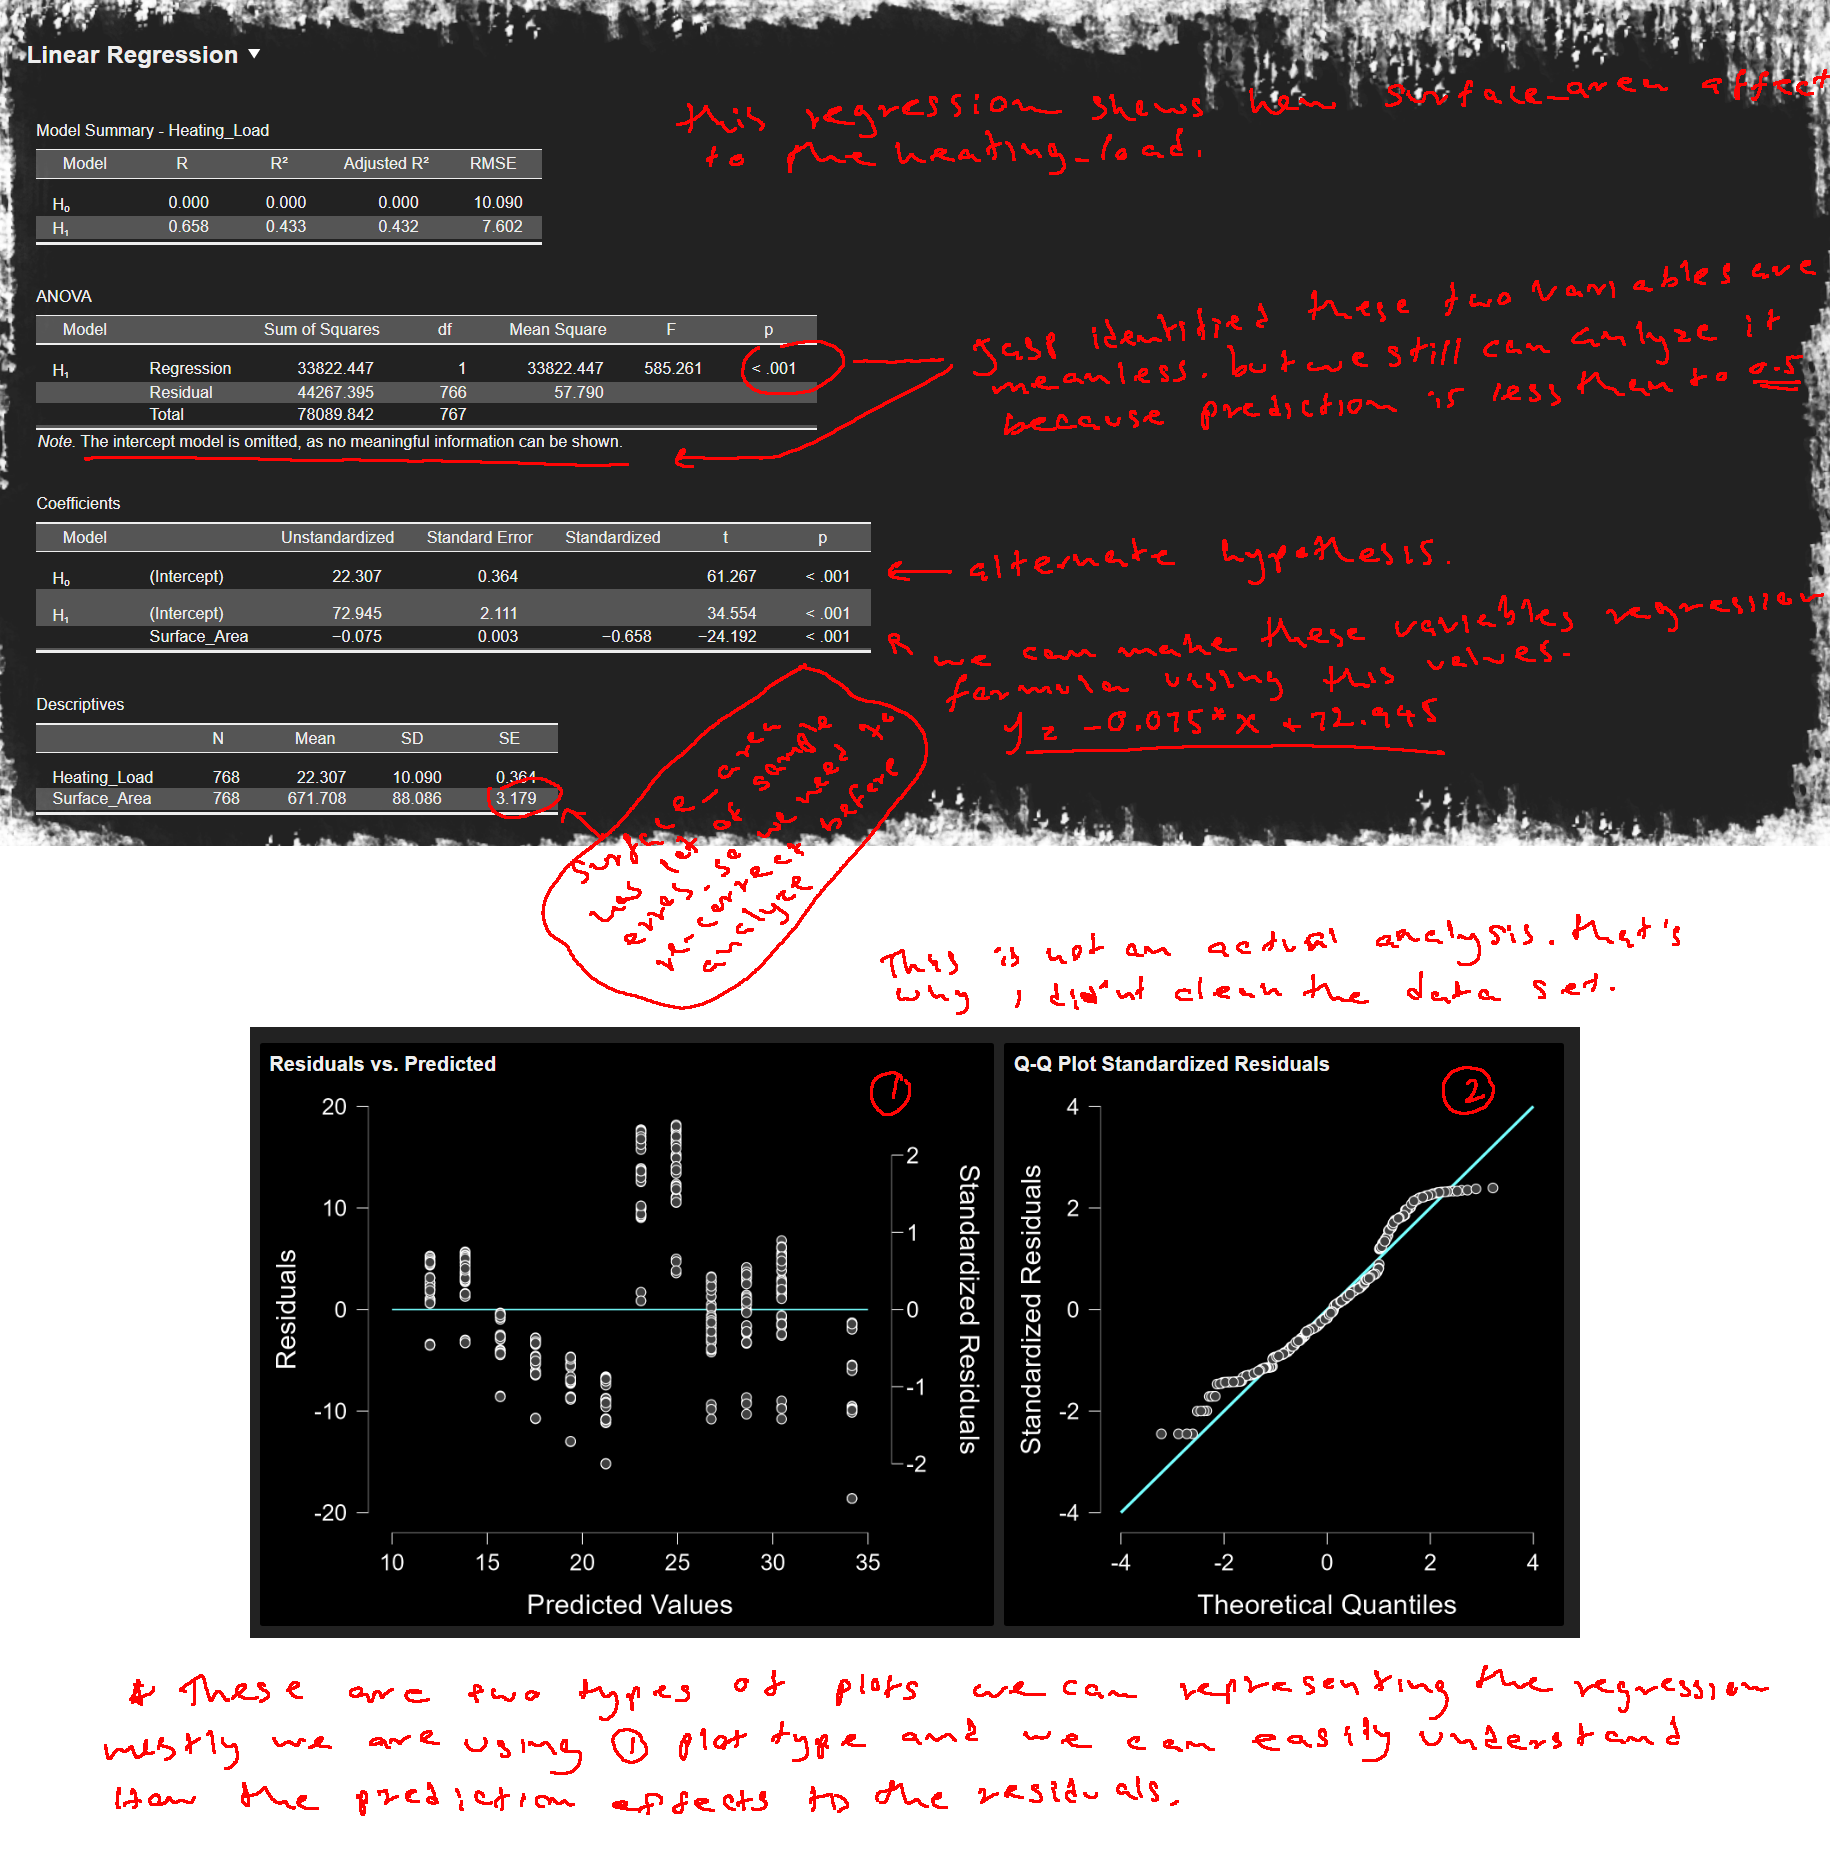 Linear Regression ▼
this regression shows how surface_area affect
to the heating_load.
Model Summary - Heating_Load
Model R R² Adjusted R² RMSE
H₀ 0.000 0.000 0.000 10.090
H₁ 0.658 0.433 0.432 7.602
ANOVA
Model Sum of Squares df Mean Square F p
H₁ Regression 33822.447 1 33822.447 585.261 < .001
Residual 44267.395 766 57.790
Total 78089.842 767
Note. The intercept model is omitted, as no meaningful information can be shown.
Jasp identified these two variables are
meanless. but we still can anlyze it
because prediction is less then to 0.5
Coefficients
Model Unstandardized Standard Error Standardized t p
H₀ (Intercept) 22.307 0.364 61.267 < .001
H₁ (Intercept) 72.945 2.111 34.554 < .001
Surface_Area −0.075 0.003 −0.658 −24.192 < .001
alternate hypothesis.
we can make these variables regression
formula using this values.
y = -0.075*x + 72.945
Descriptives
N Mean SD SE
Heating_Load 768 22.307 10.090 0.364
Surface_Area 768 671.708 88.086 3.179
surface_area
has lot of sample
erros. so we need to
re-correct before
analyze
This is not an actual analysis. that's
why i didn't clean the data set.
Residuals vs. Predicted
1
20
10
0
-10
-20
Residuals
2
1
0
-1
-2
Standardized Residuals
10 15 20 25 30 35
Predicted Values
Q-Q Plot Standardized Residuals
2
4
2
0
-2
-4
Standardized Residuals
-4 -2 0 2 4
Theoretical Quantiles
* These are two types of plots we can representing the regression
mostly we are using ① plot type and we can easily understand
How the prediction effects to the residuals.